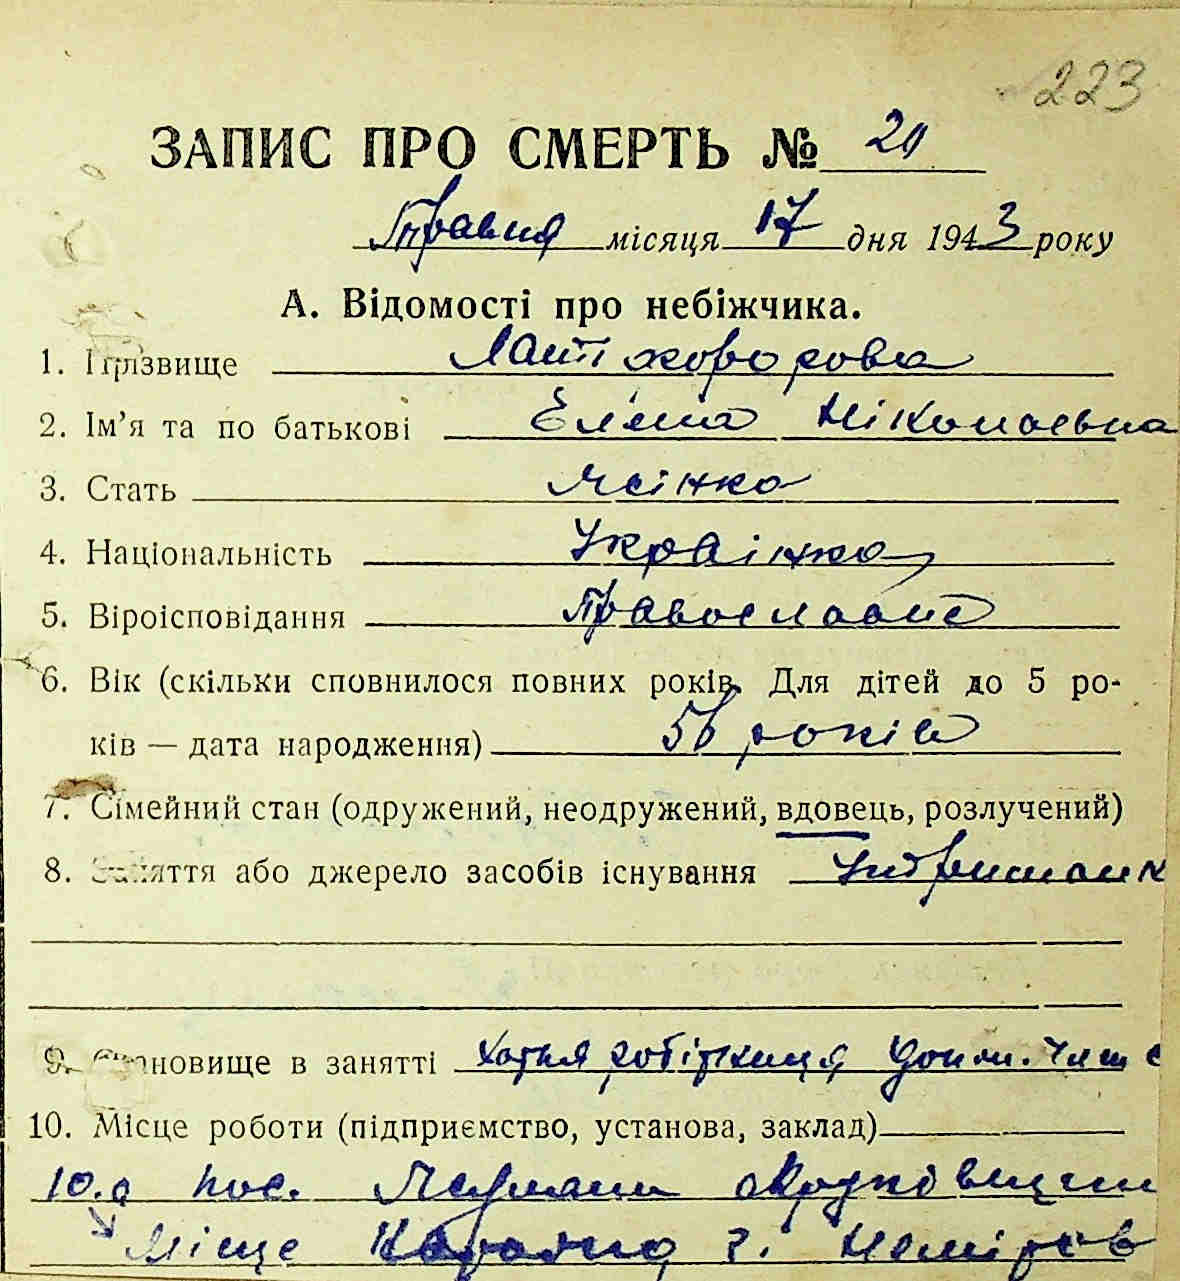 223
ЗАПИС ПРО СМЕРТЬ № 20
Травня місяця 17 дня 1943 року
А. Відомості про небіжчика.
1. Прізвище
2. Ім'я та по батькові Елена Ніколаєвна
3. Стать Жінка
4. Національність Українка
5. Віроісповідання Православне
6. Вік (скільки сповнилося повних років. Для дітей до 5 ро-
ків — дата народження) 56 років
7. Сімейний стан (одружений, неодружений, вдовець, розлучений)
8. Заняття або джерело засобів існування Утриманк
9. Становище в занятті Хатня робітниця
10. Місце роботи (підприємство, установа, заклад)
10.а пос.
Місце г. Неміров